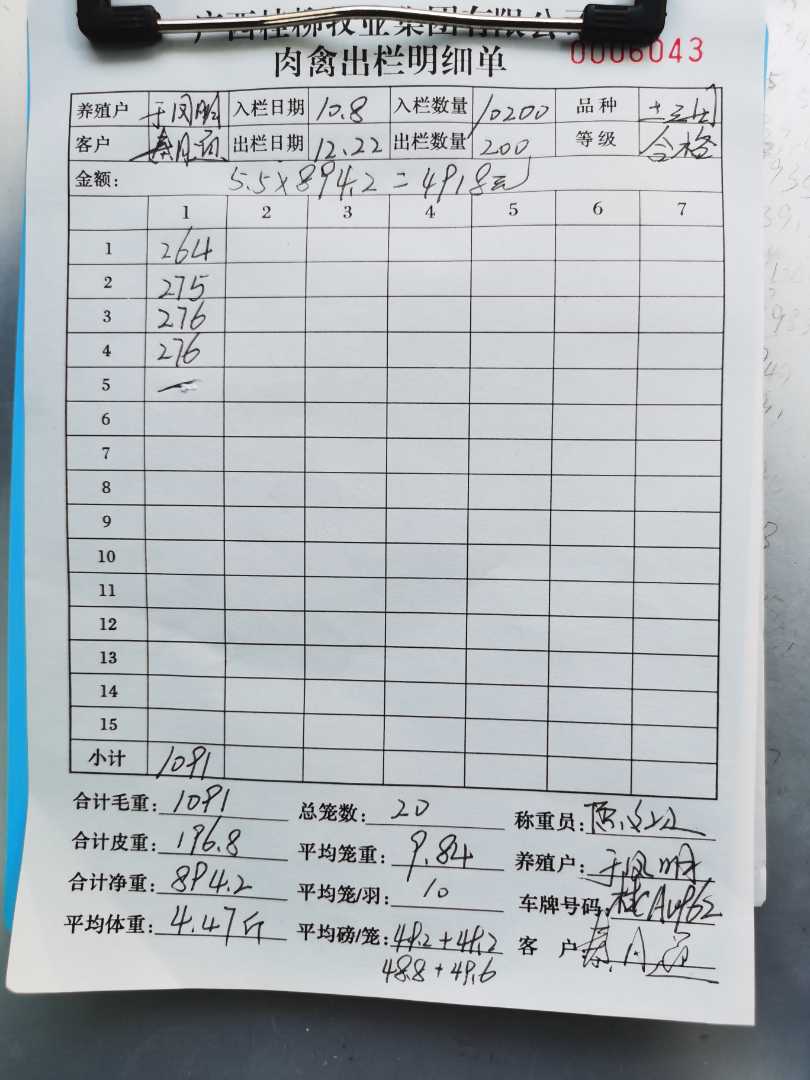 广西桂柳牧业集团有限公司
0006043
肉禽出栏明细单
养殖户 于凤明 入栏日期 10.8 入栏数量 10200 品种
客户 出栏日期 12.22 出栏数量 200 等级 合格
金额: 5.5×894.2=4918元
1 2 3 4 5 6 7
1 264
2 275
3 276
4 276
5 —
6
7
8
9
10
11
12
13
14
15
小计 1091
合计毛重: 1091 总笼数: 20 称重员:
合计皮重: 196.8 平均笼重: 9.84 养殖户: 于凤明
合计净重: 894.2 平均笼/羽: 10 车牌号码:
平均体重: 4.47斤 平均磅/笼: 49.2+49.2 客户
48.8+49.6